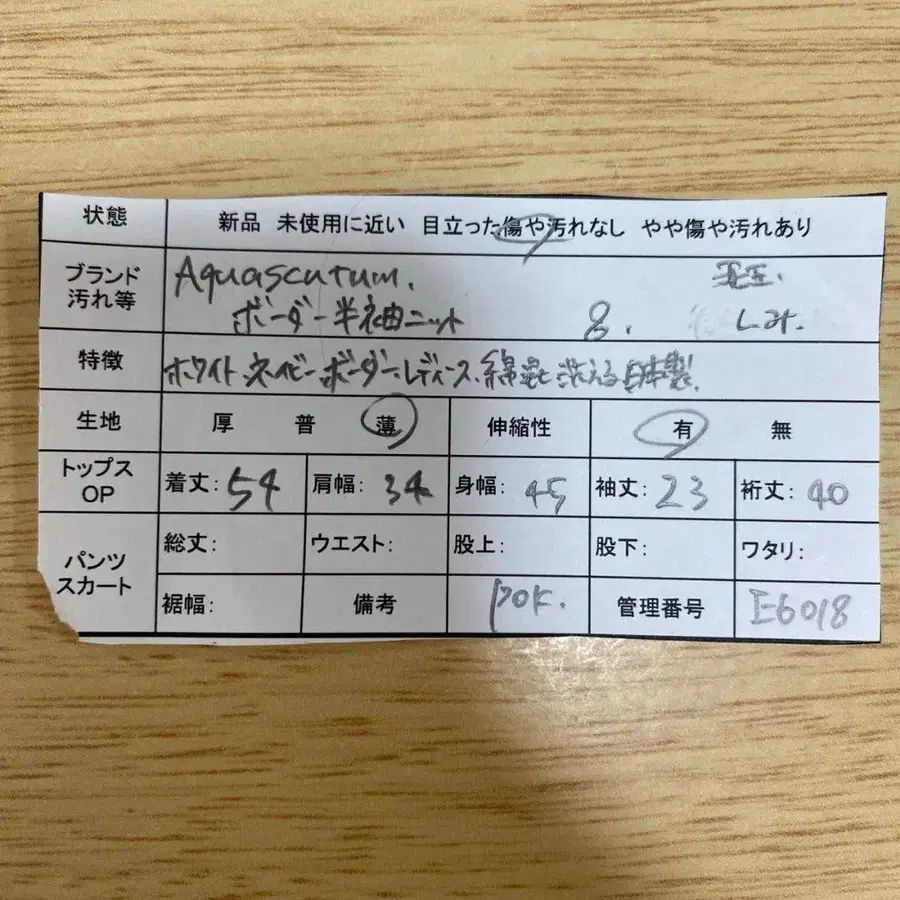 状態 新品 未使用に近い 目立った傷や汚れなし やや傷や汚れあり
ブランド Aquascutum.
汚れ等 ボーダー半袖ニット 8. しみ.
特徴 ホワイト ネイビー ボーダー.レディース.綿混 洗える 日本製.
生地 厚 普 薄 伸縮性 有 無
トップス
OP 着丈: 54 肩幅: 34 身幅: 45 袖丈: 23 裄丈: 40
パンツ
スカート 総丈: ウエスト: 股上: 股下: ワタリ:
裾幅: 備考 POK. 管理番号 E6018